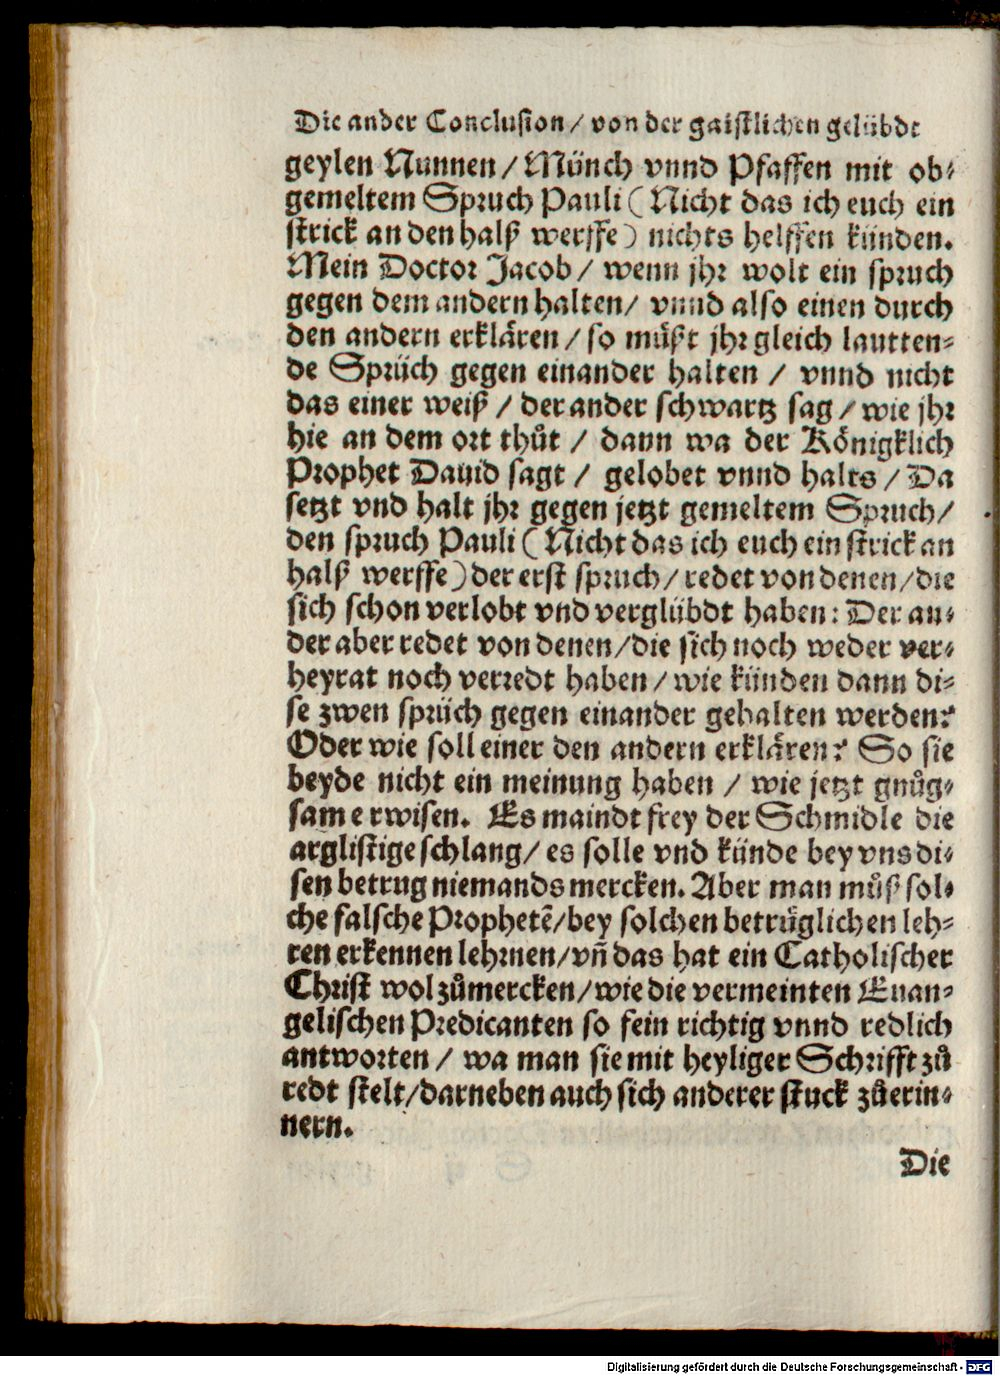 Die ander Conclusion / von der gaistlichen gelübdt
geylen Nunnen / Münch vnnd Pfaffen mit ob-
gemeltem Spruch Pauli ( Nicht das ich euch ein
strick an den halß werffe ) nichts helffen künden.
Mein Doctor Jacob / wenn jhr wolt ein spruch
gegen dem andern halten / vnnd also einen durch
den andern erklären / so müßt jhr gleich lautten-
de Sprüch gegen einander halten / vnnd nicht
das einer weiß / der ander schwartz sag / wie jhr
hie an dem ort thůt / dann wa der Königklich
Prophet Dauid sagt / gelobet vnnd halts / Da
setzt vnd halt jhr gegen jetzt gemeltem Spruch /
den spruch Pauli ( Nicht das ich euch ein strick an
halß werffe ) der erst spruch / redet von denen / die
sich schon verlobt vnd verglübdt haben : Der an-
der aber redet von denen / die sich noch weder ver-
heyrat noch verredt haben / wie künden dann di-
se zwen sprüch gegen einander gehalten werden?
Oder wie soll einer den andern erklären? So sie
beyde nicht ein meinung haben / wie jetzt gnůg-
sam erwisen. Es maindt frey der Schmidle die
arglistige schlang / es solle vnd künde bey vns di-
sen betrug niemands mercken. Aber man můß sol-
che falsche Prophetẽ / bey solchen betrüglichen leh-
ren erkennen lehrnen / vñ das hat ein Catholischer
Christ wol zůmercken / wie die vermeinten Euan-
gelischen Predicanten so fein richtig vnnd redlich
antworten / wa man sie mit heyliger Schrifft zů
redt stelt / darneben auch sich anderer stuck zůerin-
nern.
Die
Digitalisierung gefördert durch die Deutsche Forschungsgemeinschaft - DFG